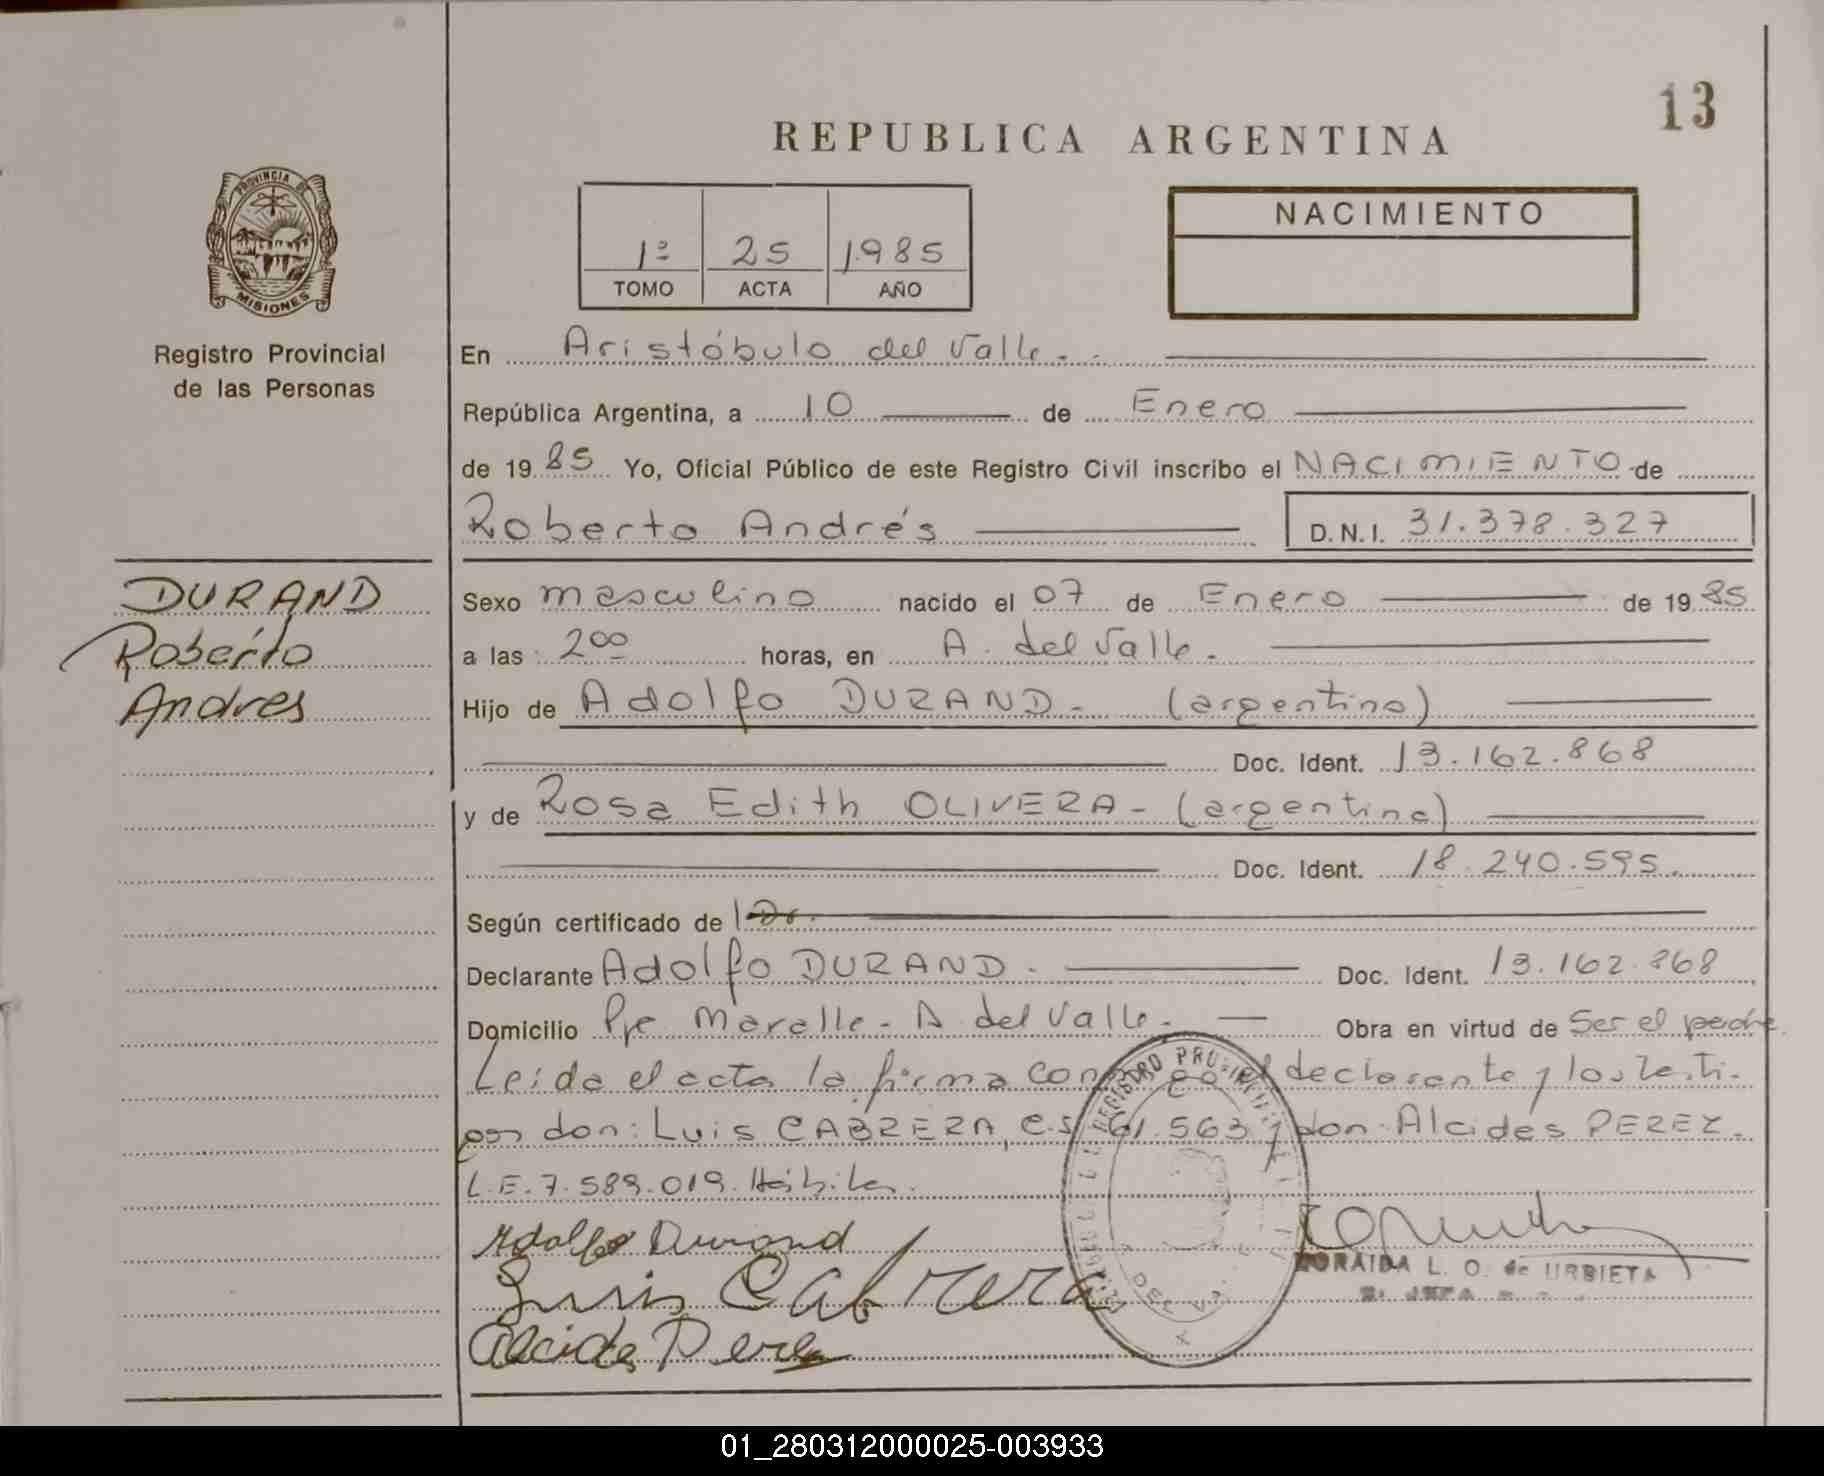 13
REPUBLICA ARGENTINA
PROVINCIA DE
MISIONES
Registro Provincial
de las Personas
1º 25 1985
TOMO ACTA AÑO
NACIMIENTO
En Aristóbulo del Valle.
República Argentina, a 10 de Enero
de 19 85 Yo, Oficial Público de este Registro Civil inscribo el NACIMIENTO de
Roberto Andrés D.N.I. 31.378.327
DURAND
Roberto
Andres
Sexo masculino nacido el 07 de Enero de 19 85
a las 2ºº horas, en A. del Valle.
Hijo de Adolfo DURAND- (argentino)
Doc. Ident. 13.162.868
y de Rosa Edith OLIVERA- (argentina)
Doc. Ident. 18.240.595.
Según certificado de
Declarante Adolfo DURAND. Doc. Ident. 13.162.868
Domicilio Pje Maralle- A del Valle. Obra en virtud de Ser el padre
Leída el acta la firma declarante y los testi-
gos don: Luis CABRERA, 61.563 y don Alcides PEREZ-
L.E. 7.589.019. Hábiles.
Adolfo Durand
Luis Cabrera
Alcides Perez
ZORAIDA L. O. de URBIETA
01_280312000025-003933